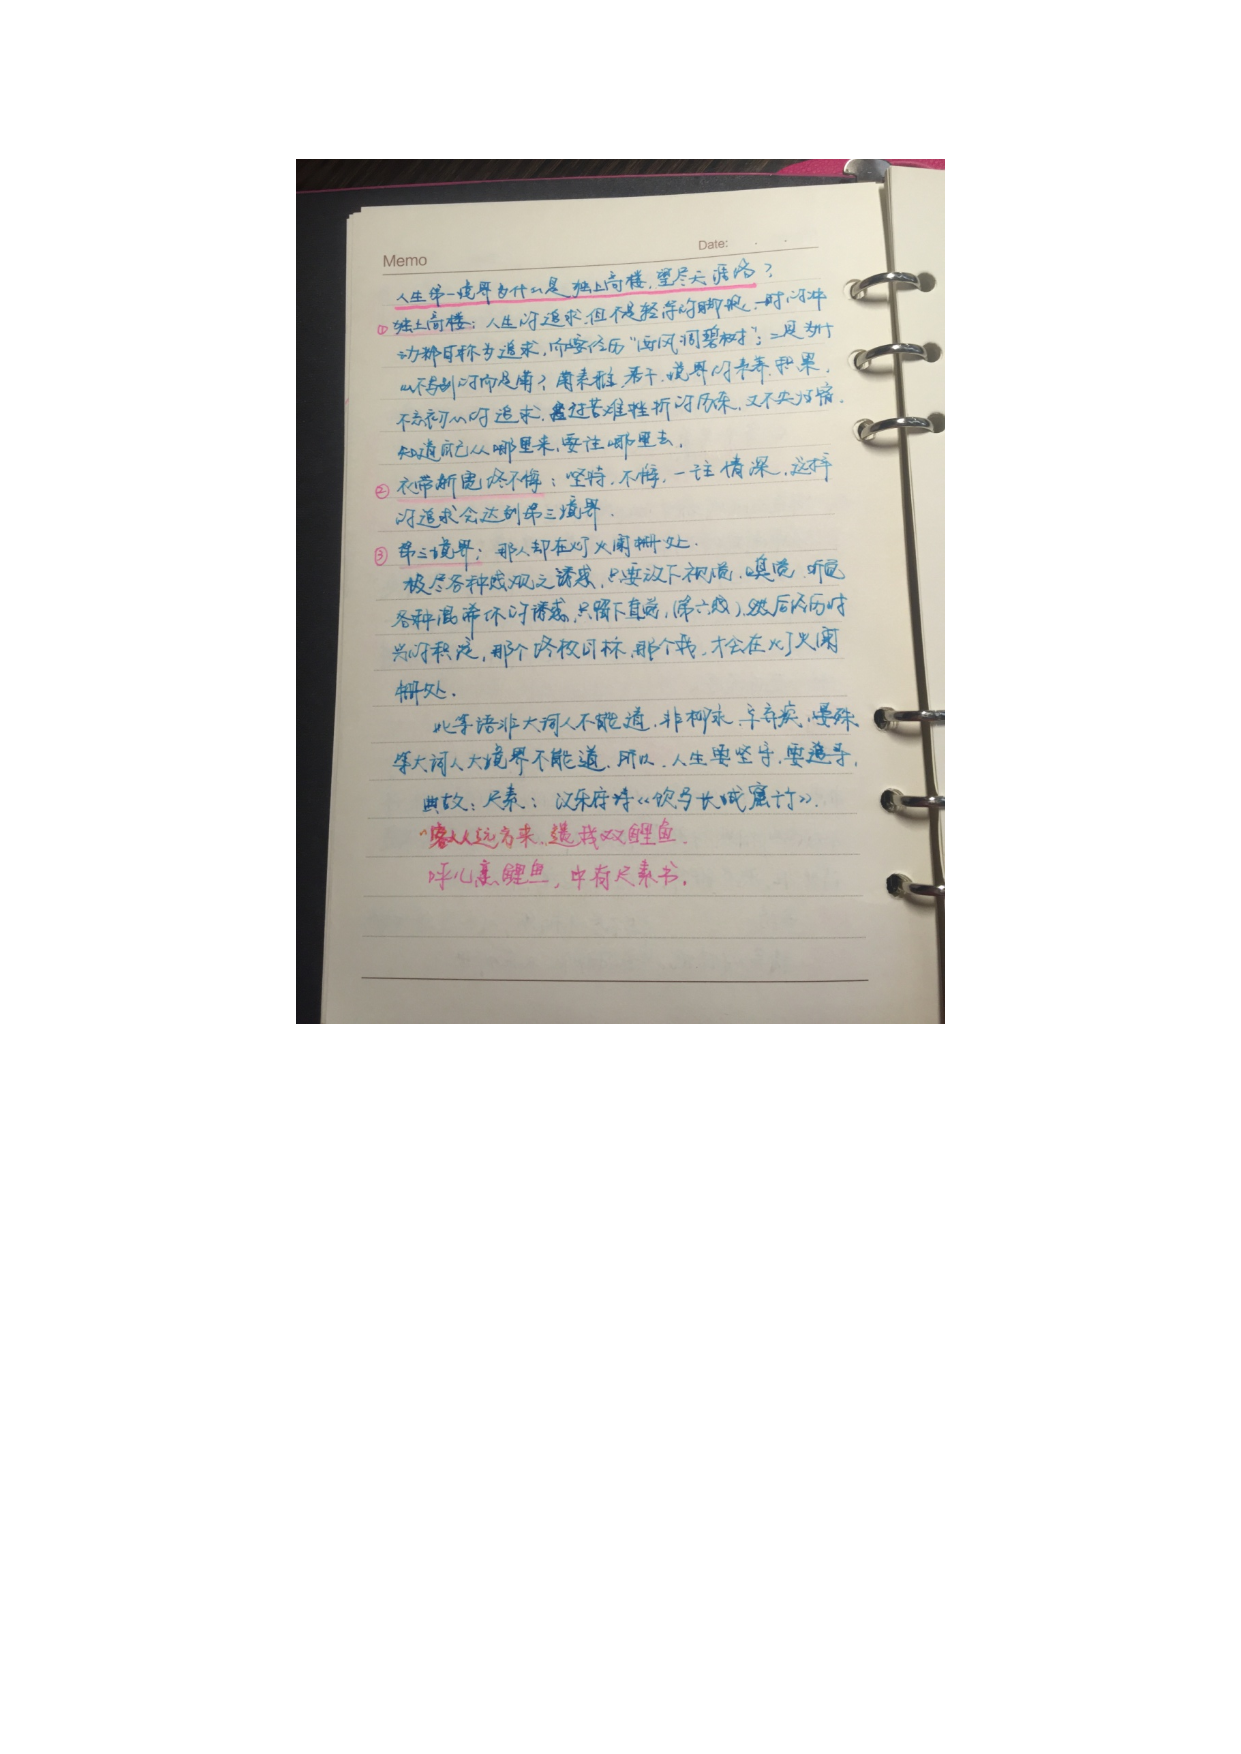 Memo
Date:
人生第一境界为什么是独上高楼,望尽天涯路?
① 独上高楼:人生的追求,但不是轻浮的脚步,一时的冲
动都可称为追求,而要经历"西风凋碧树";二是为什
不忘初心的追求,经过苦难挫折的历练,又不失
知道自己从哪里来,要往哪里去.
② 衣带渐宽终不悔:坚持,不悔,一往情深,这样
的追求会达到第三境界.
③ 第三境界:那人却在灯火阑珊处.
极尽各种感观之诱惑,只要放下视觉,嗅觉,听觉
各种混淆你的诱惑,只留下直觉,(第六感),然后经历时
光的积淀,那个终极目标,那个我,才会在灯火阑
珊处.
此等语非大词人不能道,非柳永,辛弃疾,晏殊
等大词人大境界不能道.所以,人生要坚守,要追寻.
典故:尺素:汉乐府诗《饮马长城窟行》.
"客从远方来,遗我双鲤鱼.
呼儿烹鲤鱼,中有尺素书.